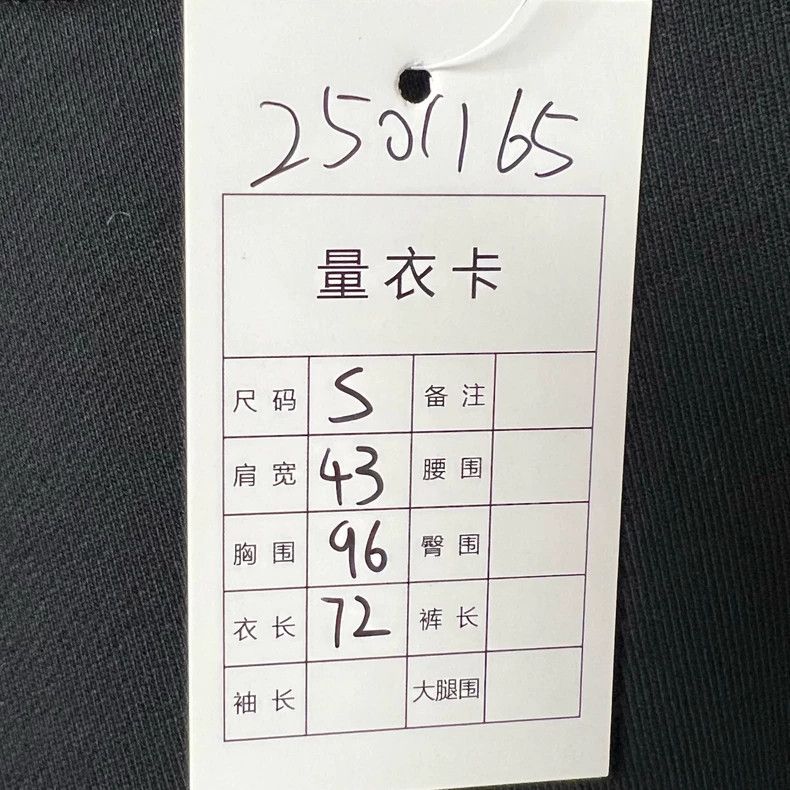 2501165
量衣卡
尺码 S 备注
肩宽 43 腰围
胸围 96 臀围
衣长 72 裤长
袖长 大腿围